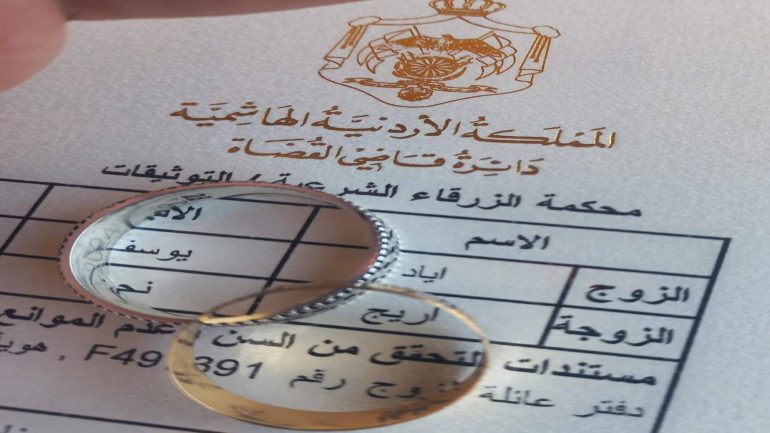 المملكة الأردنية الهاشمية
دائرة قاضي القضاة
محكمة الزرقاء الشرعية / التوثيقات
الاسم
الزوج اياد يوسف
الزوجة اريج
مستندات التحقق من السن عدم الموانع
دفتر عائلة رقم